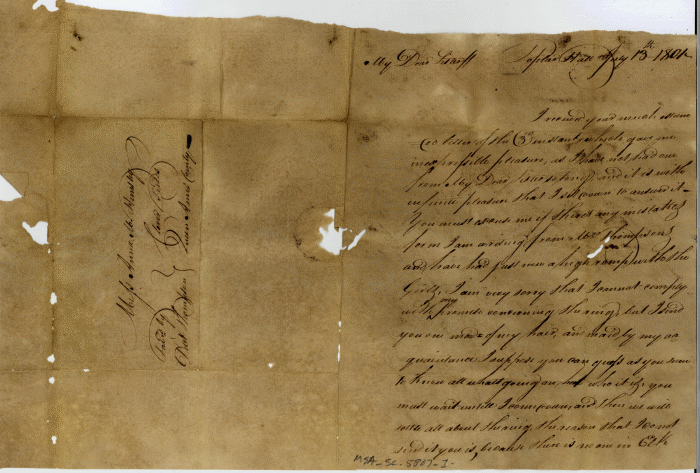 My Dear Hariff Poplar Hill July 13th 1801
I received your much esteem
ed letter of the 3d instant which gave me
inexpressible pleasure, as I have not had one
from My Dear since spring, and it is with
infinite pleasure that I sit down to answer it
You must excuse me if there's any mistakes
for I am writing from Mrs Thompsons
and have had just now a high romp with the
Girls, I am very sorry that I cannot comply
with my promise concerning the ring, but I send
you one made of my hair, and maid by my ac
quaintance I suppose you can guess as you seem
to know all whats going on, but who it is, you
must wait untill I come down, and then we will
settle all about the ring, the reason that I do not
send it you is, because there is no one in Elk
Miss Anna M Ramsey
Fav'd by
Dick Thompson
Queen Anns County
MSA-SC-5807-1-